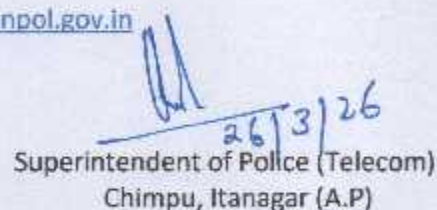 npol.gov.in
26/3/26
Superintendent of Police (Telecom)
Chimpu, Itanagar (A.P)